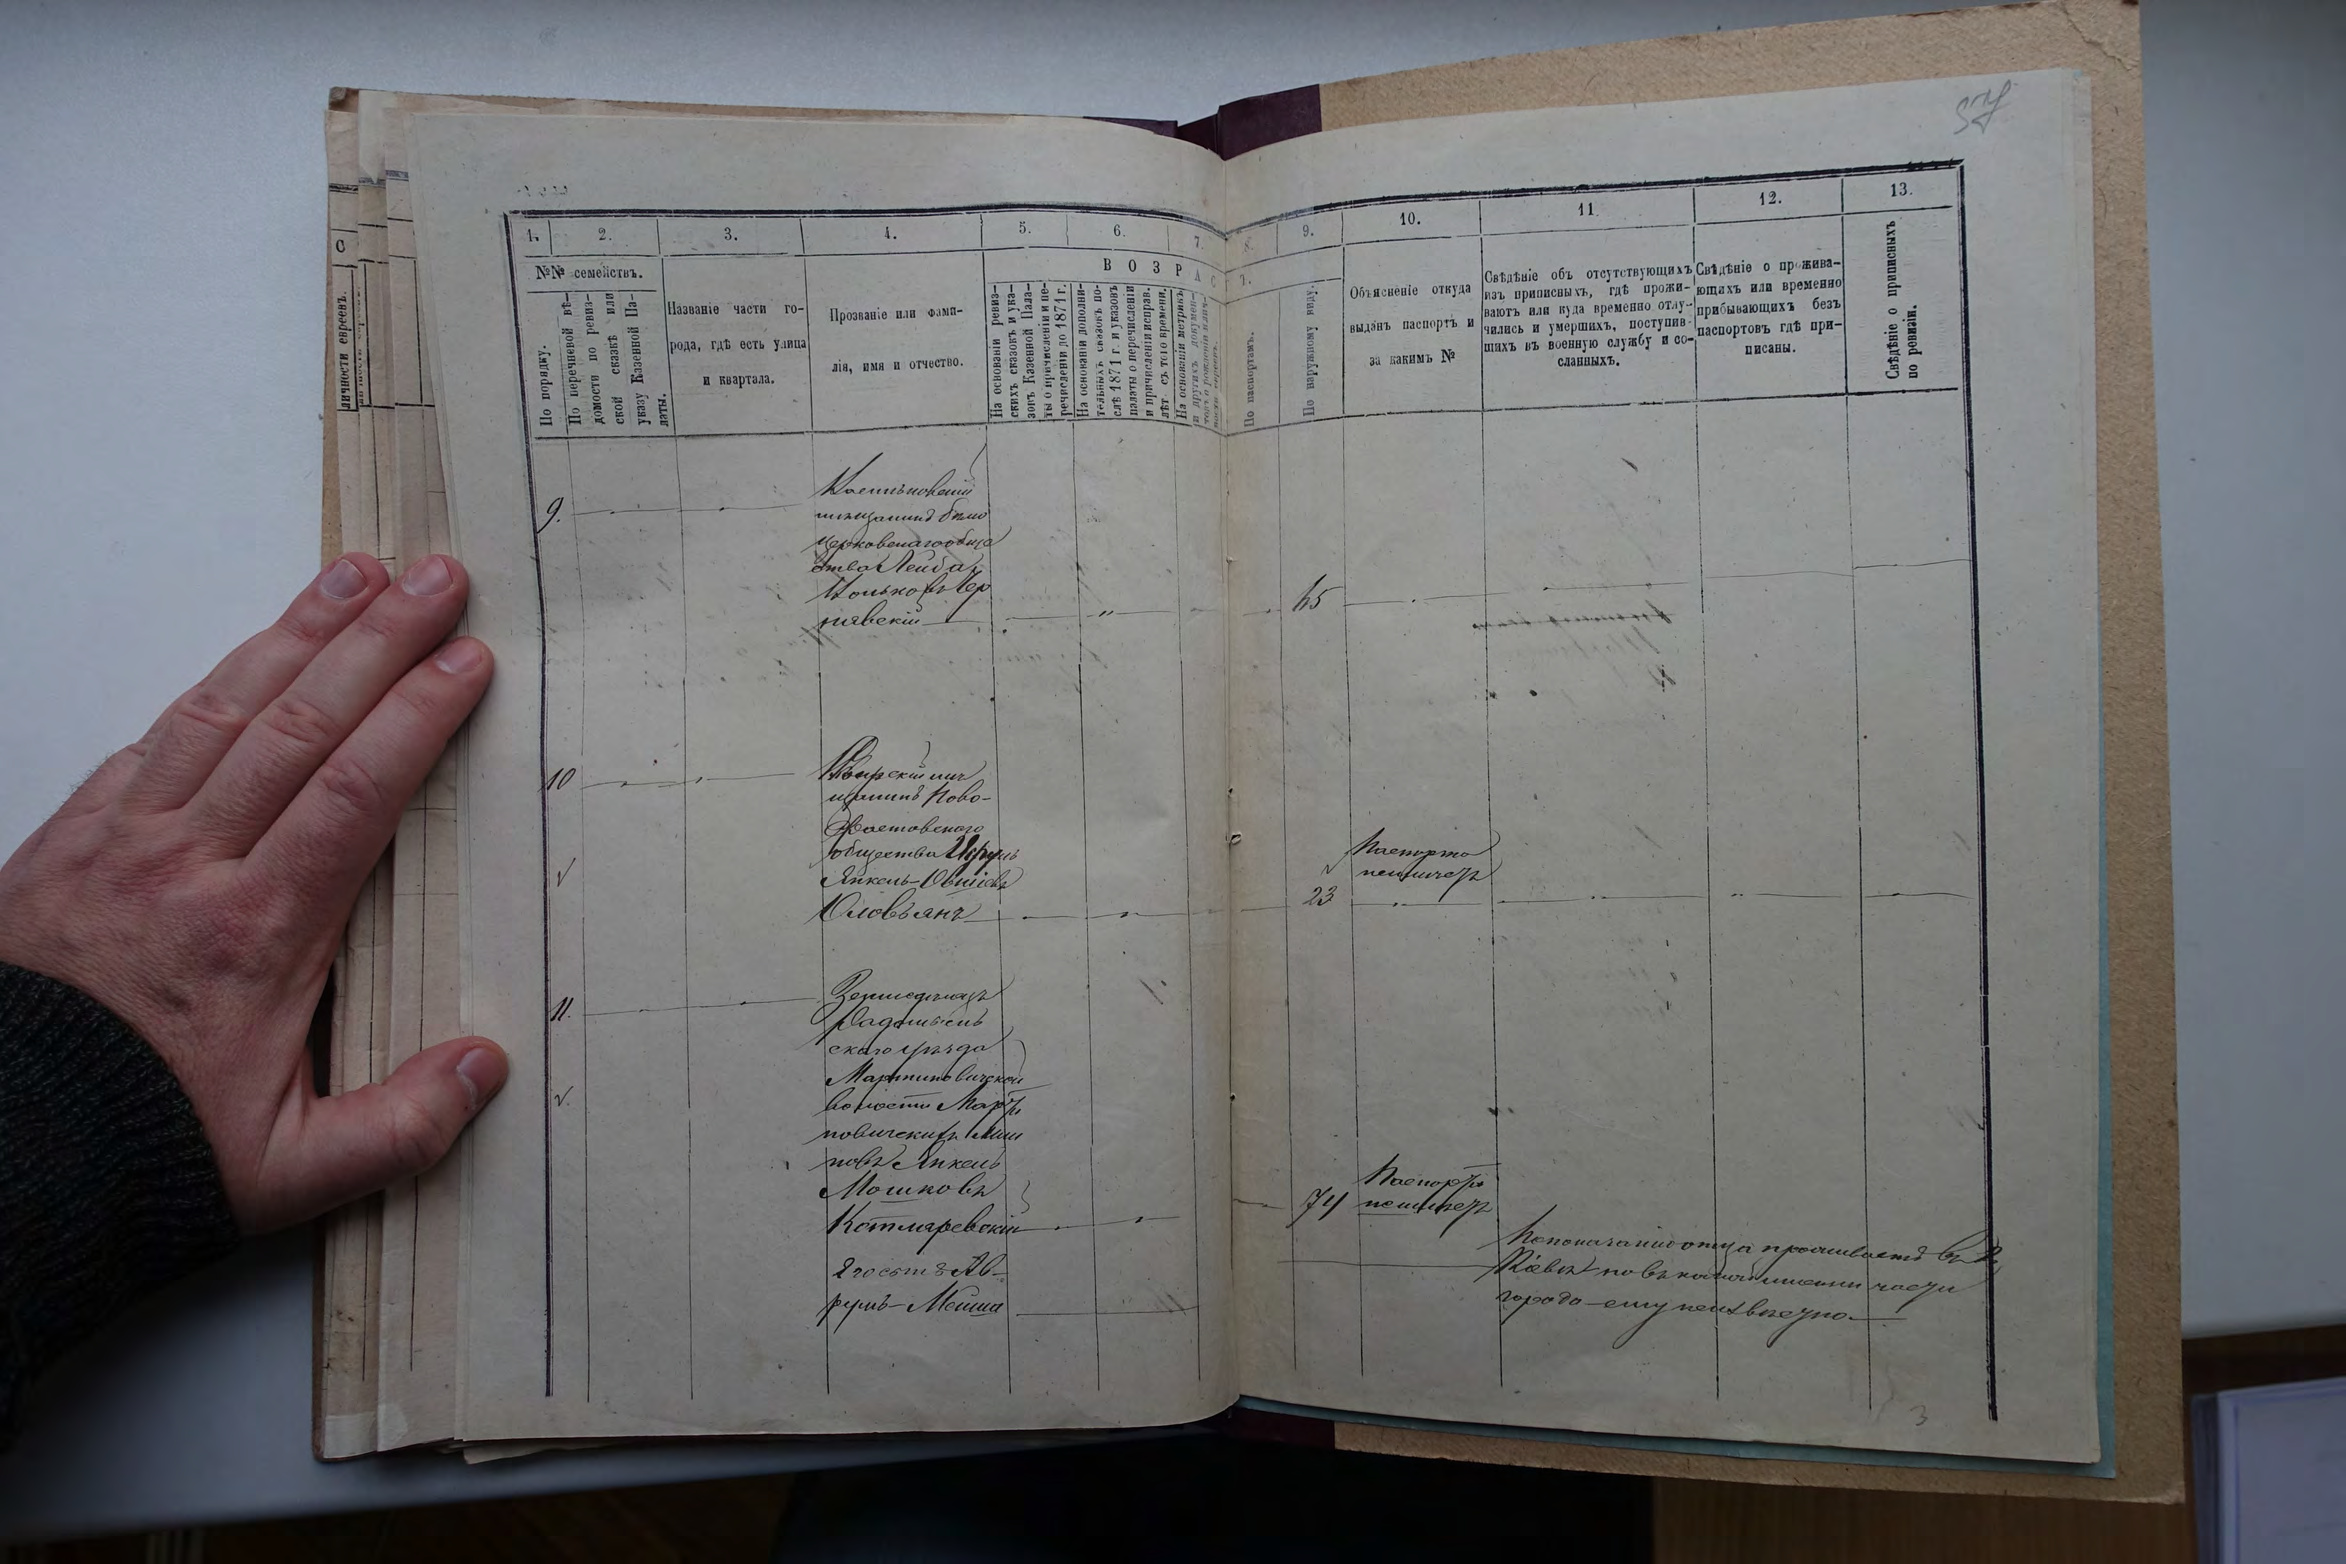 57
1.
2.
3.
4.
5.
6.
7.
8.
9.
10.
11.
12.
13.
С
личности евреевъ.
№№ семействъ.
По порядку.
По перечневой вѣ-
домости по ревиз-
ской сказкѣ или
указу Казенной Па-
латы.
Названіе части го-
рода, гдѣ есть улица
и квартала.
Прозваніе или фами-
лія, имя и отчество.
ВОЗРАСТ.
На основаніи ревиз-
скихъ сказокъ и ука-
зовъ Казенной Пала-
ты о причисленіи и пе-
речисленіи до 1871 г.
На основаніи дополни-
тельныхъ сказокъ по-
слѣ 1871 г. и указовъ
палаты о перечисленіи
и причисленіи исправ.
лѣт. съ того времени.
На основаніи метрикъ
и другихъ докумен-
По паспортамъ.
По наружному виду.
Объясненіе откуда
выданъ паспортъ и
за какимъ №
Свѣдѣніе объ отсутствующихъ
изъ приписныхъ, гдѣ прожи-
ваютъ или куда временно отлу-
чились и умершихъ, поступив-
шихъ въ военную службу и со-
сланныхъ.
Свѣдѣніе о прожива-
ющихъ или временно
прибывающихъ безъ
паспортовъ гдѣ при-
писаны.
Свѣдѣніе о приписныхъ
по ревизіи.
9.
мѣщанинъ бѣло
церковскаго обще
ства Лейба
Чер
нявскій
65
10
щанинъ Ново-
Фастовскаго
общества
Янкель-
23
Паспорта
неимѣетъ
11.
Земледѣлецъ
Радомысль
скаго уѣзда
Мартиновичской
волости Марти
новическихъ
новъ Янкель
Мошковъ
Котляревскій
74
Паспорта
неимѣетъ
Ав-
румъ-Мойша
По показанію отца проживаетъ въ г.
Кіевѣ но въ какой именно части
города ему неизвѣстно.
3